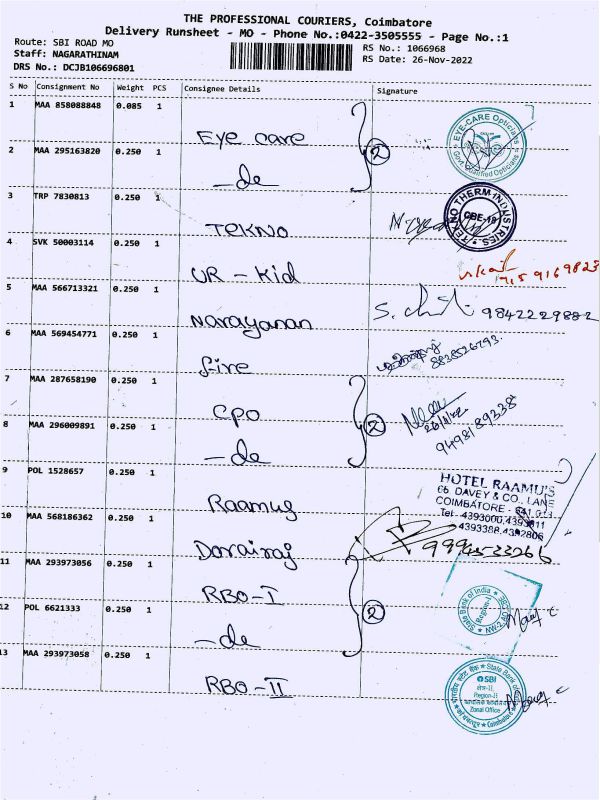 THE PROFESSIONAL COURIERS, Coimbatore
Delivery Runsheet - MO - Phone No.:0422-3505555 - Page No.:1
Route: SBI ROAD MO
RS No.: 1066968
Staff: NAGARATHINAM
RS Date: 26-Nov-2022
DRS No.: DCJB106696801
S No Consignment No Weight PCS Consignee Details Signature
1 MAA 858088848 0.085 1
Eye care
EYE-CARE Opticians
Govt Qualified Opticians
2 MAA 295163820 0.250 1
-de
2
3 TRP 7830813 0.250 1
TEKNO
TEKNO THERM INDUSTRIES
CBE-18
4 SVK 50003114 0.250 1
UR - Kid
9159169823
5 MAA 566713321 0.250 1
Narayanan
9842229882
6 MAA 569454771 0.250 1
fire
8838526793
7 MAA 287658190 0.250 1
CPO
8 MAA 296009891 0.250 1
-de
2
9498189338
9 POL 1528657 0.250 1
Raamus
HOTEL RAAMU'S
66 DAVEY & CO., LANE
COIMBATORE - 641 018
Tel 4393000, 4393811
4393388, 4392806
10 MAA 568186362 0.250 1
Dorairaj
11 MAA 293973056 0.250 1
RBO-I
State Bank of India
Region-I
12 POL 6621333 0.250 1
-de
2
13 MAA 293973058 0.250 1
RBO-II
State Bank of
SBI
Region-II
Zonal Office
Coimbatore